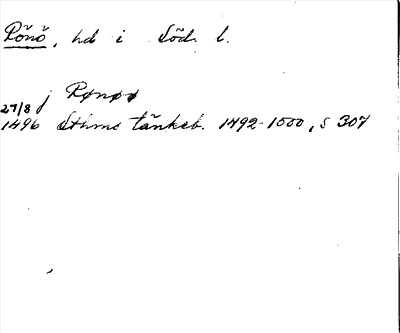 Rönö, hd i Söd. l.
j Rønøø
27/8
1496 Sthms tänkeb. 1492-1500, s 307